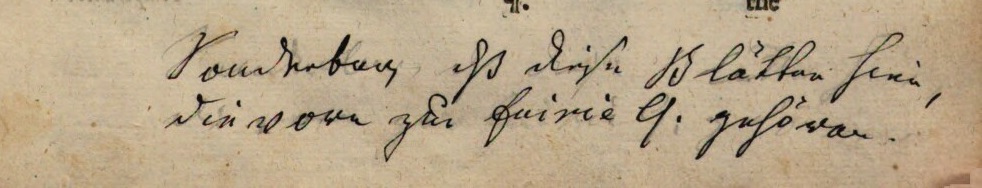 Sonderbar, dß diese Blätter hier,
die vorn zur gehören.